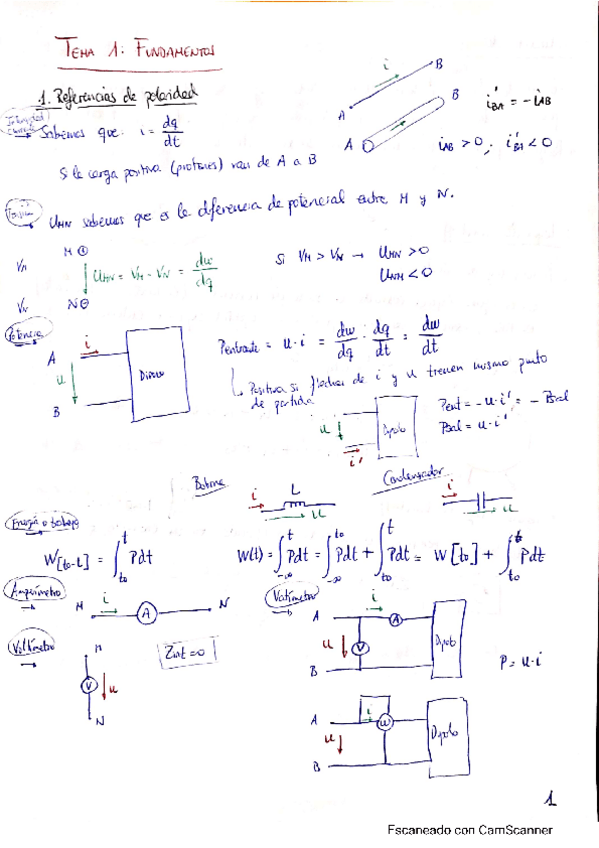 TEMA 1: FUNDAMENTOS
1. Referencias de polaridad
Intensidad
Corriente
Sabemos que: i = dq/dt
Si la carga positiva (protones) van de A a B
i
A
B
A
B
i'BA = - iAB
iAB > 0 ; i'BA < 0
Tensión
UMN sabemos que es la diferencia de potencial entre M y N.
M ⊕
VM
UMN = VM - VN = dw/dq
VN
N ⊖
Si VM > VN → UMN > 0
UNM < 0
Potencia
A
i
u
B
Dipolo
Pentrante = u · i = dw/dq · dq/dt = dw/dt
Positiva si flechas de i y u tienen mismo punto
de partida
u
i'
Dipolo
Pent = -u·i' = - Psal
Psal = u·i'
Bobina
i
L
u
Condensador
i
u
Energía o trabajo
W[to-t] = ∫to t Pdt
W(t) = ∫-∞ t Pdt = ∫-∞ to Pdt + ∫to t Pdt = W[to] + ∫to t Pdt
Amperímetro
M
i
A
N
Vatímetro
A
i
A
u
V
B
Dipolo
P = u·i
Voltímetro
M
V
u
N
Zint = 0
A
i
W
u
B
Dipolo
1
Escaneado con CamScanner